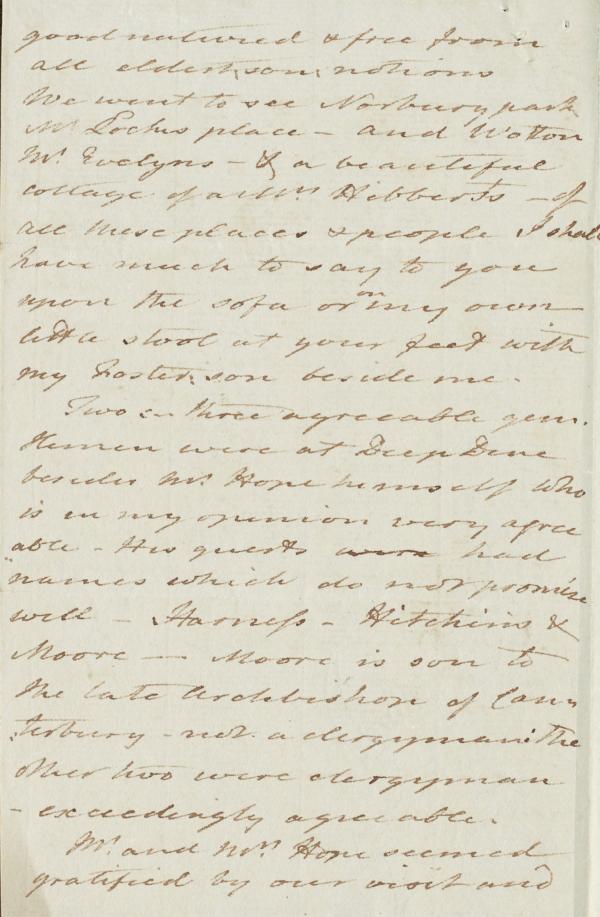 good natured & free from
all eldest, son, notions
We went to see Norbury park
Mr Locks place – and Wotton
Mr. Evelyns – & a beautiful
cottage of a Mrs Hibberts – of
all these places & people I shall
have much to say to you
upon the sofa or on my own
little stool at your feet with
my Foster, son beside me.
Two or three agreeable gen.
tlemen were at Deep Dene
besides Mr. Hope himself who
is in my opinion very agree
able – His guests were had
names which do not promise
well – Harness – Hitchins &
Moore — Moore is son to
the late Archbishop of Can
terbury – not a clergyman: The
other two were clergyman
– exceedingly agreeable.
Mr. and Mrs Hope seemed
gratified by our visit and